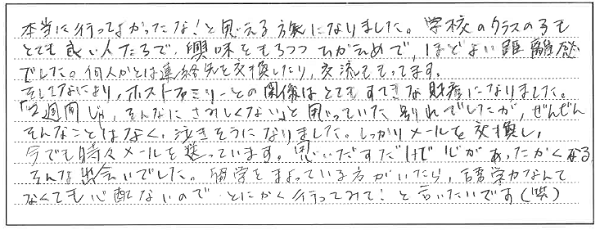 本当に行ってよかったな!と思える旅になりました。学校のクラスの子も
とても良い人たちで、興味をもちつつひかえめで、ほどよい距離感
でした。何人かとは連絡先を交換したり、交流もしてます。
そしてなにより、ホストファミリーとの関係はとてもすてきな財産になりました。
「2週間じゃ、そんなにさみしくない」と思っていた別れでしたが、ぜんぜん
そんなことはなく、泣きそうになりました。しっかりメールを交換し、
今でも時々メールを送っています。思いだすだけで心があったかくなる
そんな出会いでした。留学をまよっている方がいたら、語学力なんて
なくても心配ないので とにかく行ってみて!と言いたいです(笑)